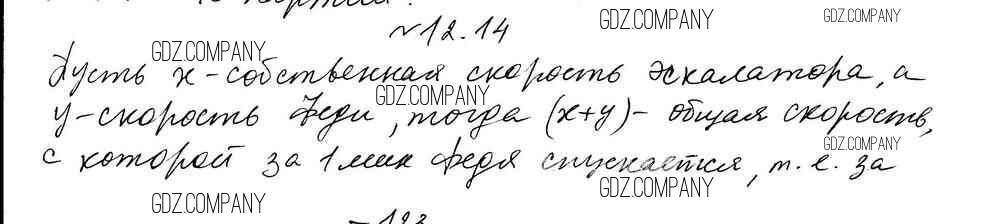 GDZ.COMPANY GDZ.COMPANY
№12.14
GDZ.COMPANY
Пусть х-собственная скорость эскалатора, а
GDZ.COMPANY
у-скорость Феди, тогда (х+у)- общая скорость,
GDZ.COMPANY
с которой за 1 мин Федя спускается, т.е. за
GDZ.COMPANY GDZ.COMPANY